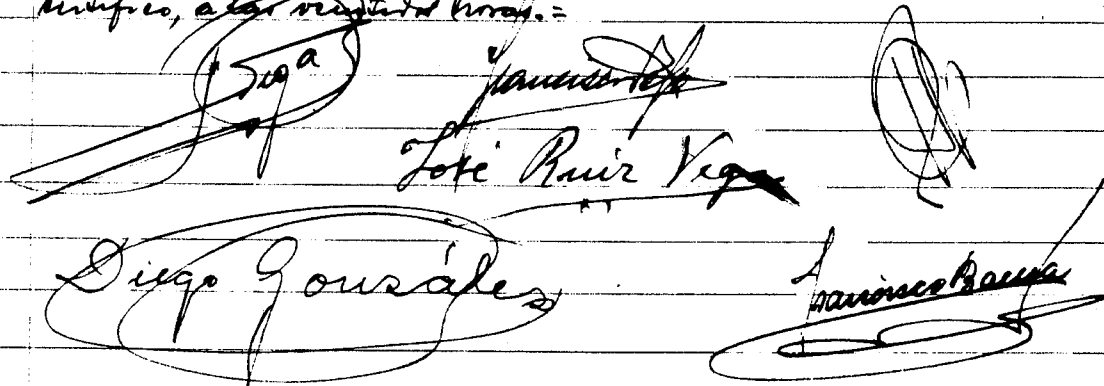 certifico, a las veintidos horas.=
Francisco
José Ruiz Vega
Diego González
Francisco